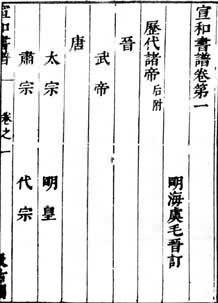 宣和書譜卷第一
明海虞毛晉訂
歷代諸帝后附
晉
武帝
唐
太宗 明皇
肅宗 代宗
宣和書譜 卷之一